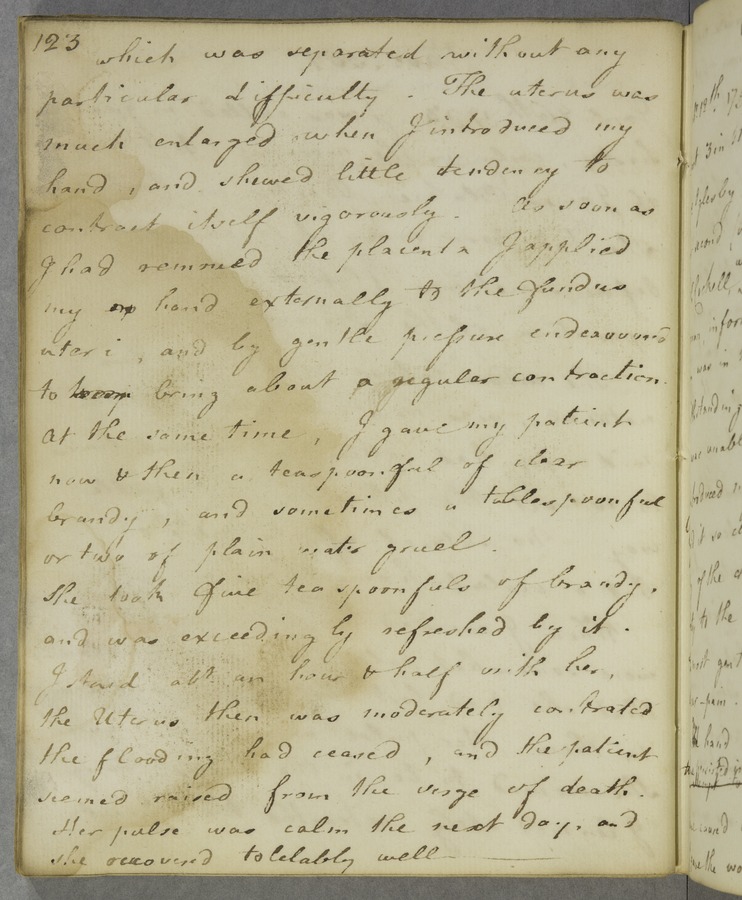 123
which was separated without any
particular difficulty. The uterus was
much enlarged when I introduced my
hand, and shewed little tendency to
contract itself vigorously. As soon as
I had removed the placenta I applied
my hand externally to the fundus
uteri, and by gentle pressure endeavoured
to bring about a regular contraction.
At the same time, I gave my patient
now & then a teaspoonful of clear
brandy, and sometimes a tablespoonful
or two of plain water gruel.
She took five teaspoonfuls of brandy,
and was exceedingly refreshed by it.
I staid abt. an hour & half with her,
the Uterus then was moderately contracted
the flooding had ceased, and the patient
seemed raised from the verge of death.
Her pulse was calm the next day, and
she recovered tolelably well